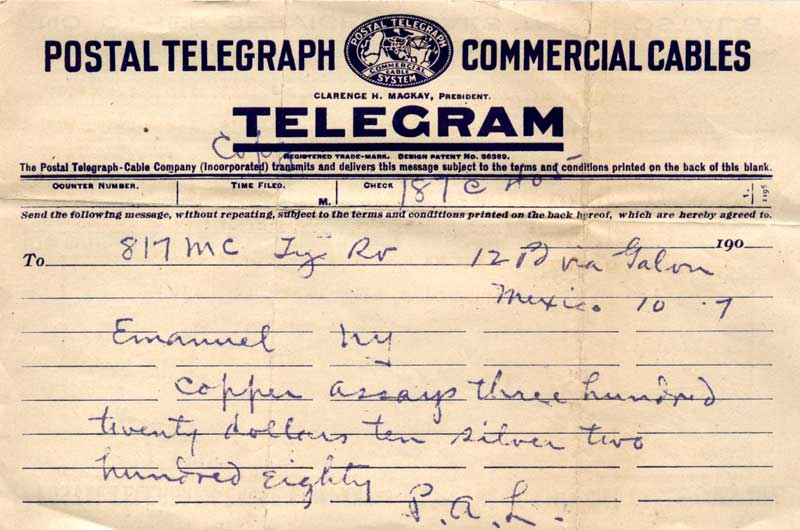 POSTAL TELEGRAPH COMMERCIAL CABLES
POSTAL TELEGRAPH
COMMERCIAL
CABLE
SYSTEM
CLARENCE H. MACKAY, PRESIDENT.
TELEGRAM
Copy
REGISTERED TRADE-MARK. DESIGN PATENT No. 36369.
The Postal Telegraph-Cable Company (Incorporated) transmits and delivers this message subject to the terms and conditions printed on the back of this blank.
COUNTER NUMBER. TIME FILED. M. CHECK
187 C
Send the following message, without repeating, subject to the terms and conditions printed on the back hereof, which are hereby agreed to.
190
To 817 MC 12 Pd via Galvn
Mexico 10 . 7
Emanuel Ny
copper assays three hundred
twenty dollars ten silver two
hundred eighty
P. A. L.